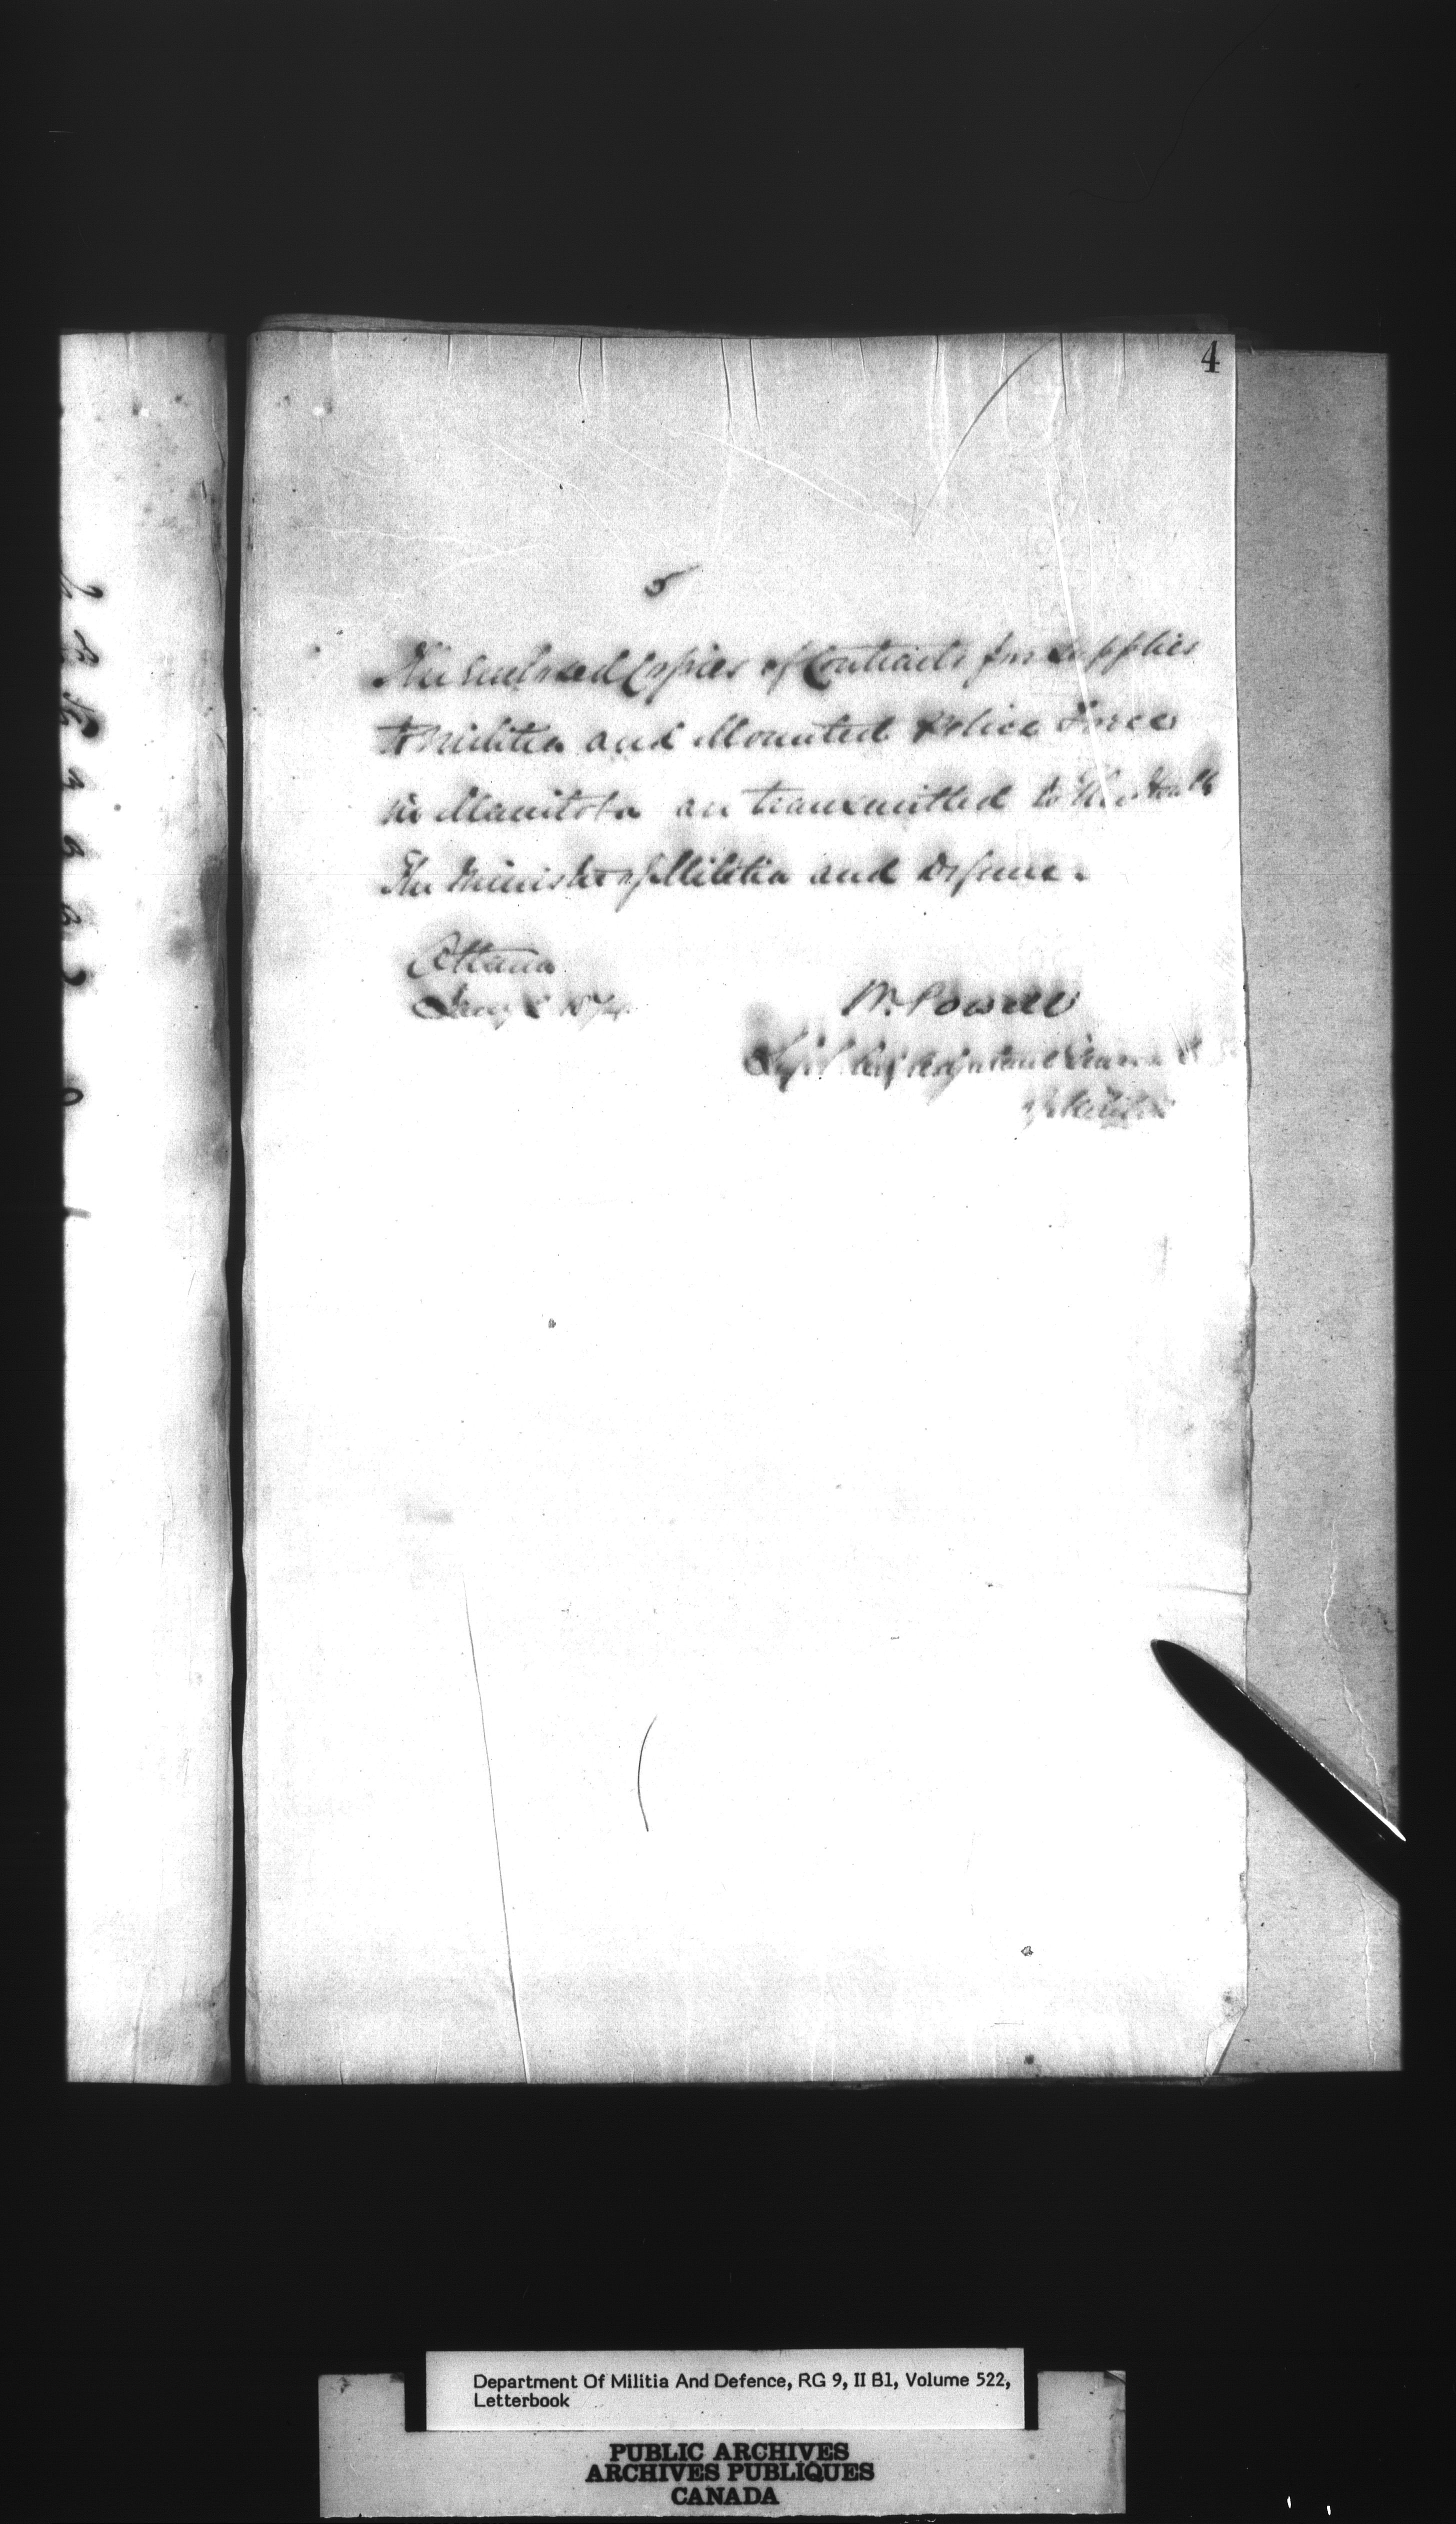 4
5
The Enclosed Copies of Contracts for Supplies
to Militia and Mounted Police Force
in Manitoba are transmitted to The Honble
The Minister of Militia and Defence.
Ottawa
Jany 8 1874
W. Powell
Lt Col Adjutant General
of Militia
Department Of Militia And Defence, RG 9, II B1, Volume 522,
Letterbook
PUBLIC ARCHIVES
ARCHIVES PUBLIQUES
CANADA